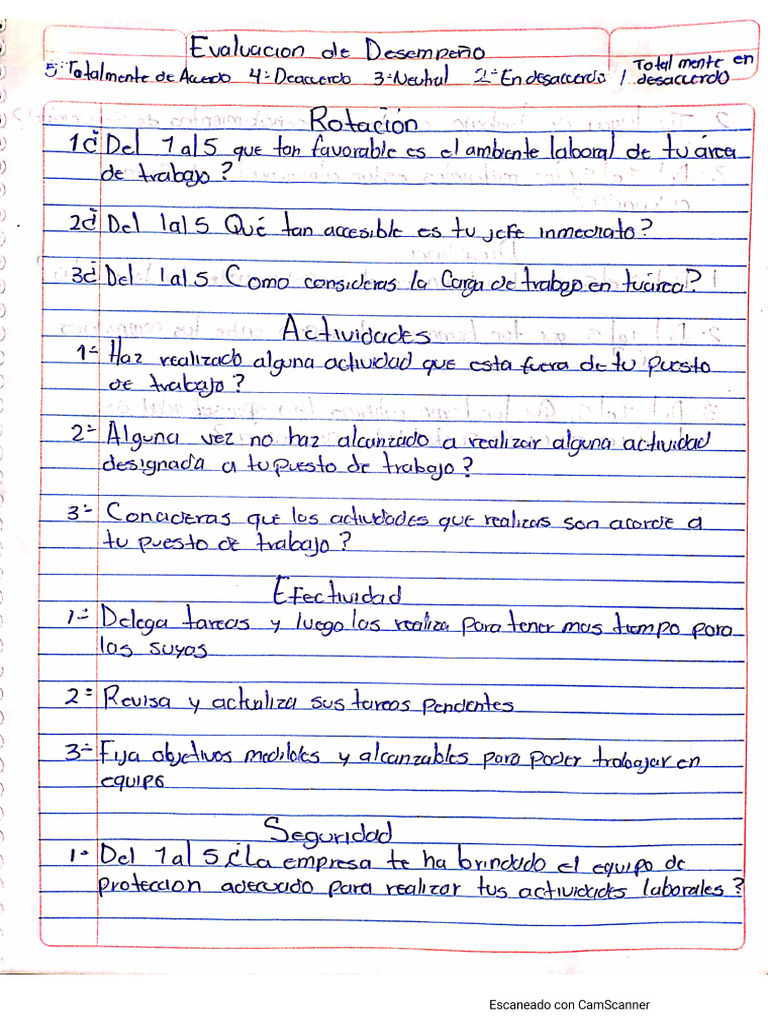 Evaluacion de Desempeño
5÷Totalmente de Acerdo 4÷Deacuerdo 3÷Neutral 2÷En desacuerdo 1 Totalmente en
desacuerdo
Rotación
1¿ Del 1 al 5 que tan favorable es el ambiente laboral de tu área
de trabajo?
2¿ Del 1al 5 Qué tan accesible es tu jefe inmediato?
3¿ Del 1al 5 Como consideras la Carga de trabajo en tu área?
Actividades
1÷ Haz realizado alguna actividad que esta fuera de tu puesto
de trabajo?
2÷ Alguna vez no haz alcanzado a realizar alguna actividad
designada a tu puesto de trabajo?
3÷ Concideras que las actividades que realizas son acorde a
tu puesto de trabajo?
Efectividad
1÷ Delega tareas y luego las realiza para tener mas tiempo para
las suyas
2÷ Revisa y actualiza sus tareas pendentes
3÷ Fija objetivos medibles y alcanzables para poder trabajar en
equipo
Seguridad
1÷ Del 1 al 5 ¿La empresa te ha brindado el equipo de
protección adecuado para realizar tus actividades laborales?
Escaneado con CamScanner